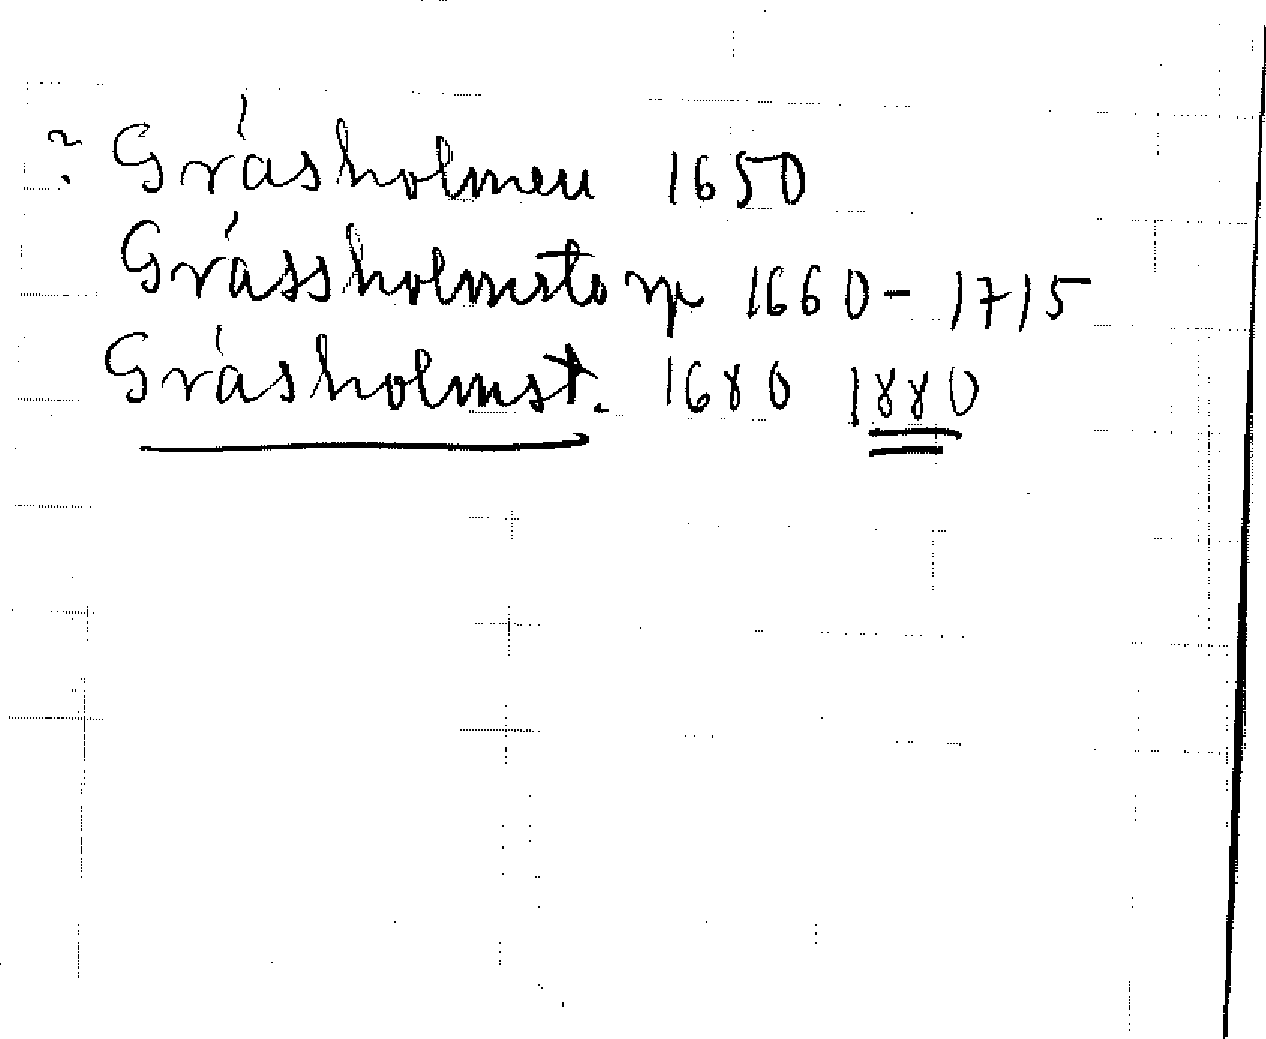 ? Gråsholmen 1650
Gråssholmstorp 1660 - 1715
Gråsholmst. 1680 1880